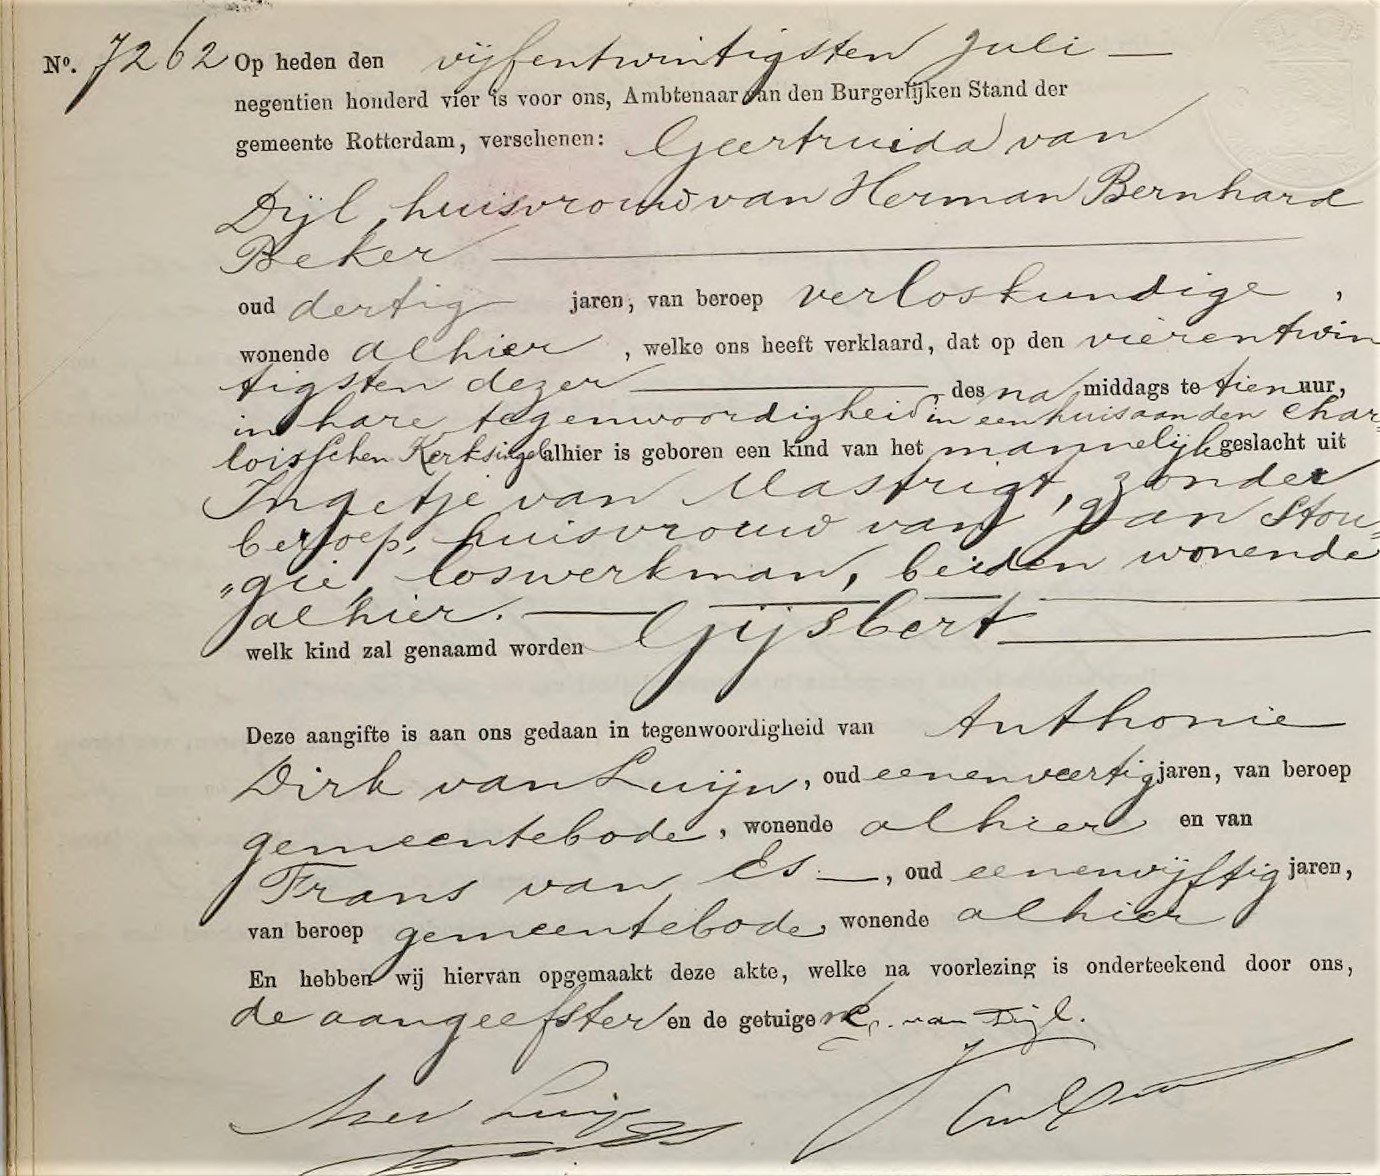 No. 7262 Op heden den vijfentwintigsten Juli
negentien honderd vier is voor ons, Ambtenaar van den Burgerlijken Stand der
gemeente Rotterdam, verschenen: Geertruida van
Dijl, huisvrouw van Herman Bernhard
Beker
oud dertig jaren, van beroep verloskundige,
wonende alhier, welke ons heeft verklaard, dat op den vierentwin
tigsten dezer, des na middags te tien uur,
in hare tegenwoordigheid in een huis aan den Char=
loisschen Kerksingel alhier is geboren een kind van het mannelijk geslacht uit
Ingetje van Mastrigt, zonder
beroep, huisvrouw van Jan Stou=
"gie, loswerkman, beiden wonende
alhier.
welk kind zal genaamd worden Gijsbert
Deze aangifte is aan ons gedaan in tegenwoordigheid van Anthonie
Dirk van Luijn, oud eenenveertig jaren, van beroep
gemeentebode, wonende alhier en van
Frans van Es, oud eenenvijftig jaren,
van beroep gemeentebode, wonende alhier
En hebben wij hiervan opgemaakt deze akte, welke na voorlezing is onderteekend door ons,
de aangeefster en de getuigen. van Dijl.